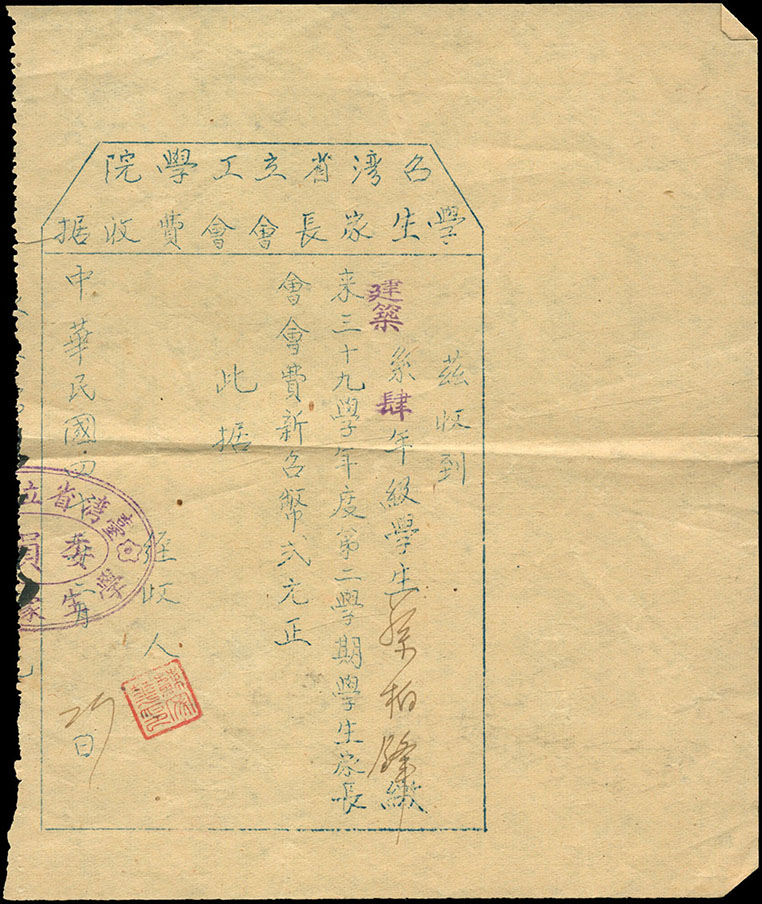 台湾省立工學院
學生家長會會費收据
茲收到
建築系肆年級學生蔡柏鋒繳
来三十九學年度第二學期學生家長
會會費新台幣弍元正
此据
經收人
中華民國四 年 二月 27日
湾省立
學生家
委員